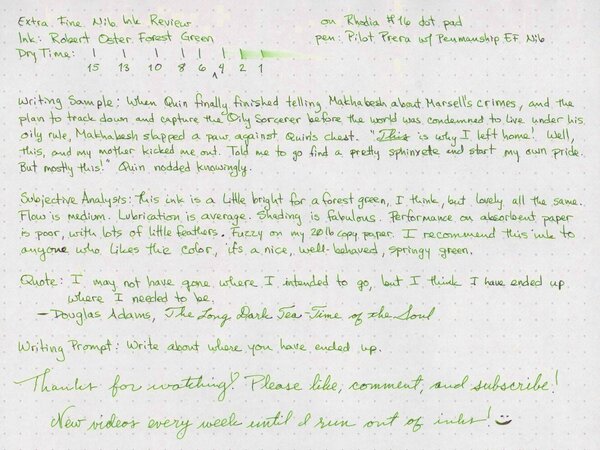 Extra Fine Nib Ink Review on Rhodia #16 dot pad
Ink: Robert Oster Forest Green pen: Pilot Prera w/ Penmanship EF Nib
Dry Time: | | | | | | | |
15 13 10 8 6 ^ 4 2 1
Writing Sample: When Quin finally finished telling Makhabesh about Marsell's crimes, and the
plan to track down and capture the Oily Sorcerer before the world was condemned to live under his
oily rule, Makhabesh slapped a paw against Quin's chest. "This is why I left home! Well,
this, and my mother kicked me out. Told me to go find a pretty sphinxete and start my own pride.
But mostly this!" Quin nodded knowingly.
Subjective Analysis: This ink is a little bright for a forest green, I think, but lovely all the same.
Flow is medium. Lubrication is average. Shading is fabulous. Performance on absorbent paper
is poor, with lots of little feathers. Fuzzy on my 20lb copy paper. I recommend this ink to
anyone who likes the color, it's a nice, well-behaved, springy green.
Quote: I may not have gone where I intended to go, but I think I have ended up
where I needed to be.
— Douglas Adams, The Long Dark Tea-Time of the Soul
Writing Prompt: Write about where you have ended up.
Thanks for watching! Please like, comment, and subscribe!
New videos every week until I run out of inks!